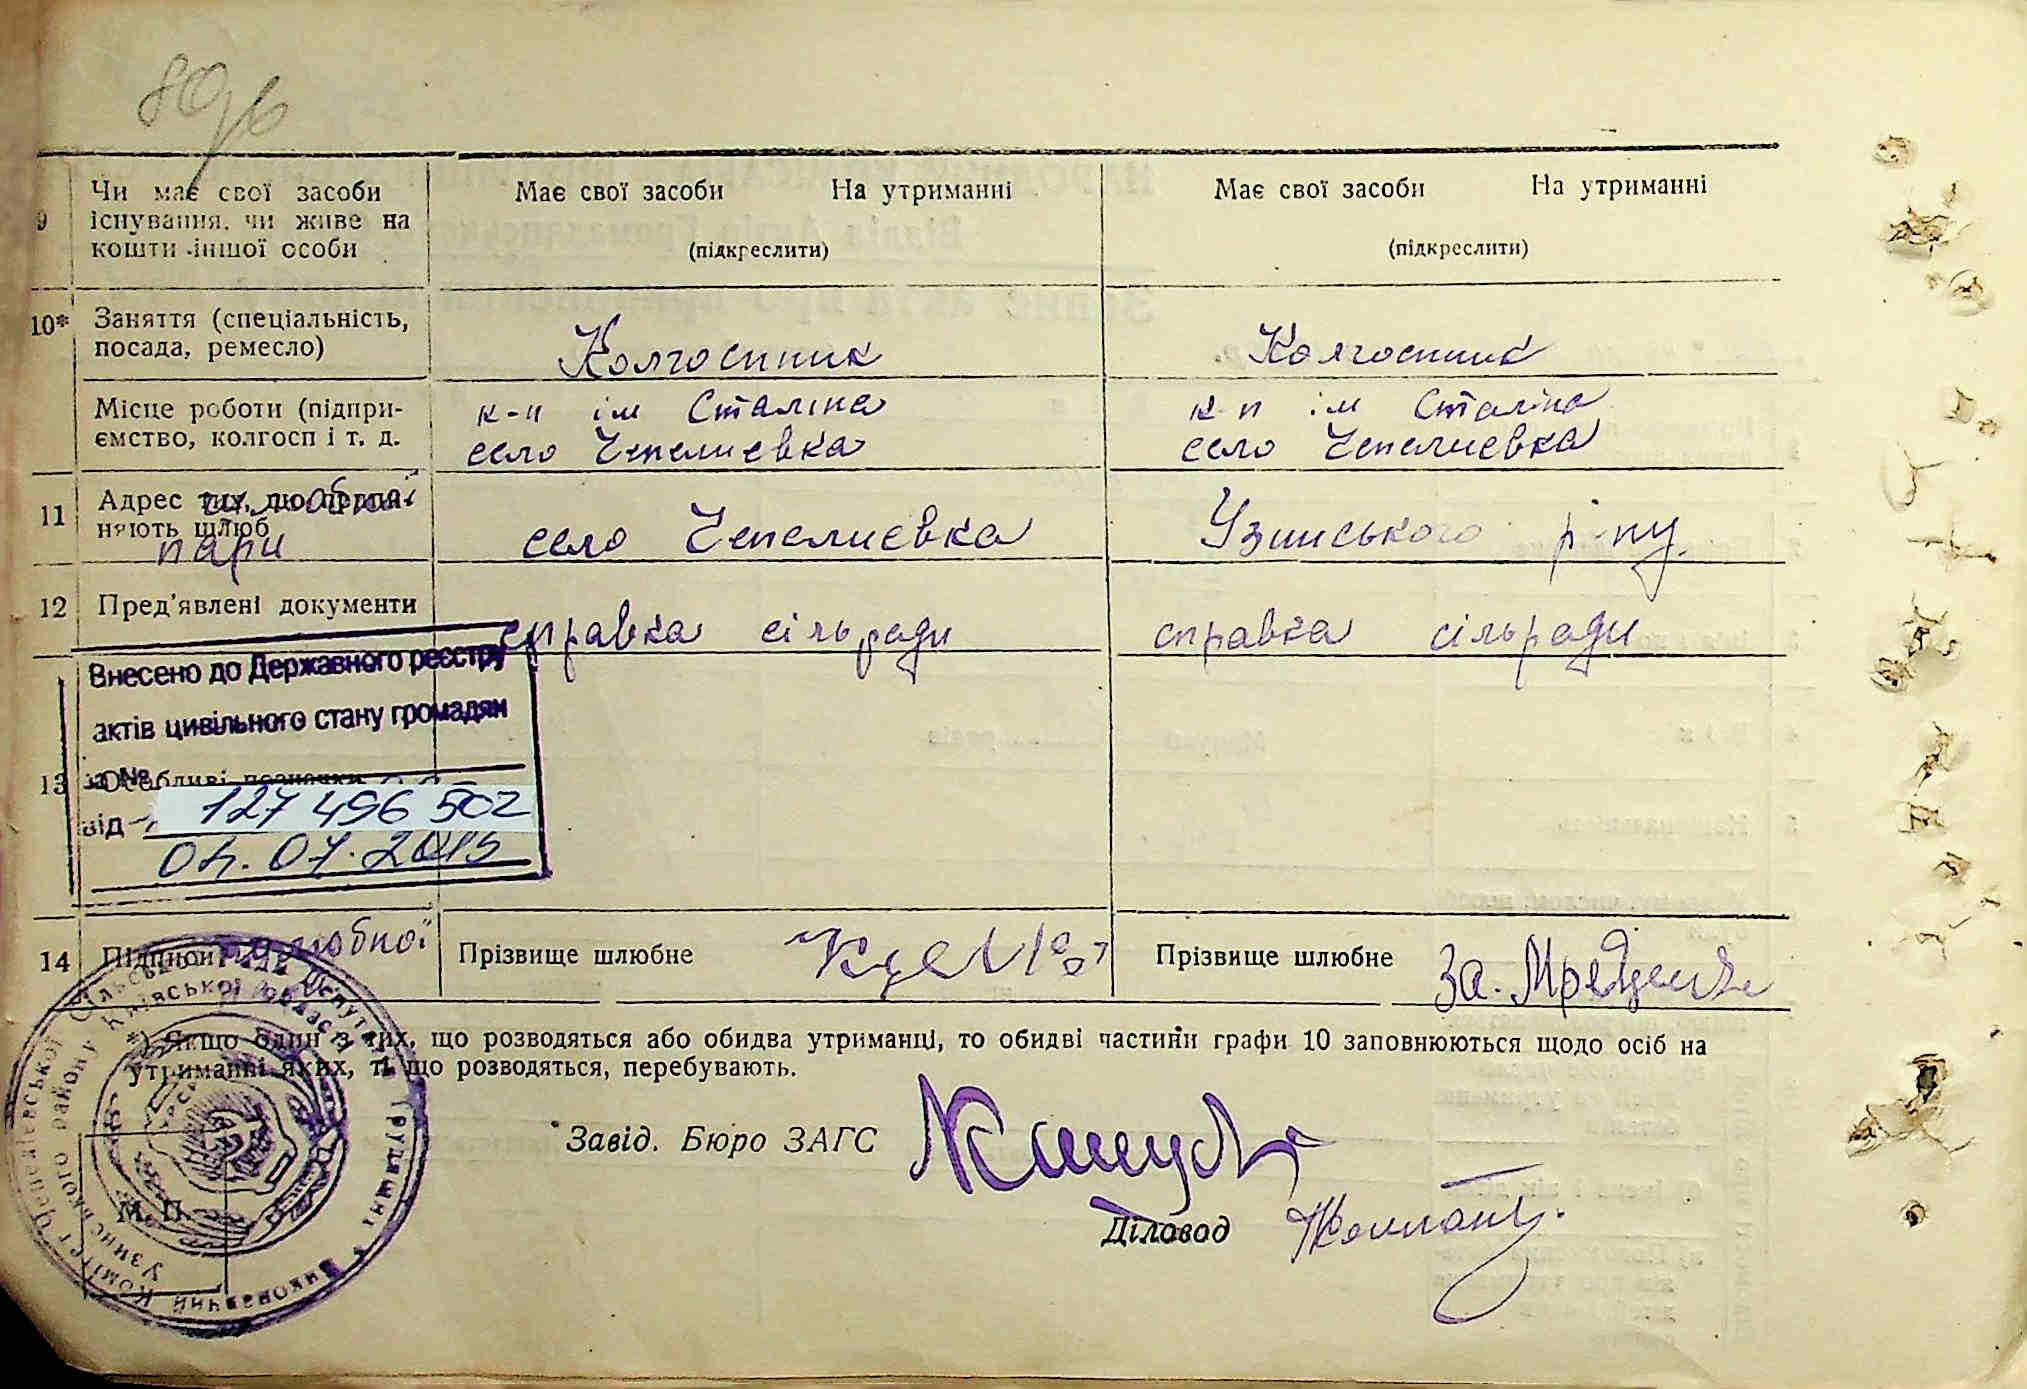 Чи має свої засоби Має свої засоби На утриманні Має свої засоби На утриманні
9 існування, чи живе на
кошти іншої особи (підкреслити) (підкреслити)
10* Заняття (спеціальність,
посада, ремесло) Колгоспник Колгоспник
Місце роботи (підпри- к-п ім Сталіна к-п ім Сталіна
ємство, колгосп і т. д. село Чепелиевка село Чепелиевка
11 Адрес тих, що припи-
няють шлюб шлюбної
пари село Чепелиевка Узинського р-ну.
12 Пред'явлені документи справка сільради справка сільради
Внесено до Державного реєстру
актів цивільного стану громадян
13 Особливі позначки
за №
127 496 502
від
04.07.2015
14 Підписи шлюбної Прізвище шлюбне Прізвище шлюбне
За.
*) Якщо один з тих, що розводяться або обидва утриманці, то обидві частини графи 10 заповнюються щодо осіб на
утриманні яких, ті що розводяться, перебувають.
Завід. Бюро ЗАГС
Діловод
М. П.
Виконавчий Комітет Чепеліївської Сільської Ради Депутатів Трудящих
Узинського району Київської області